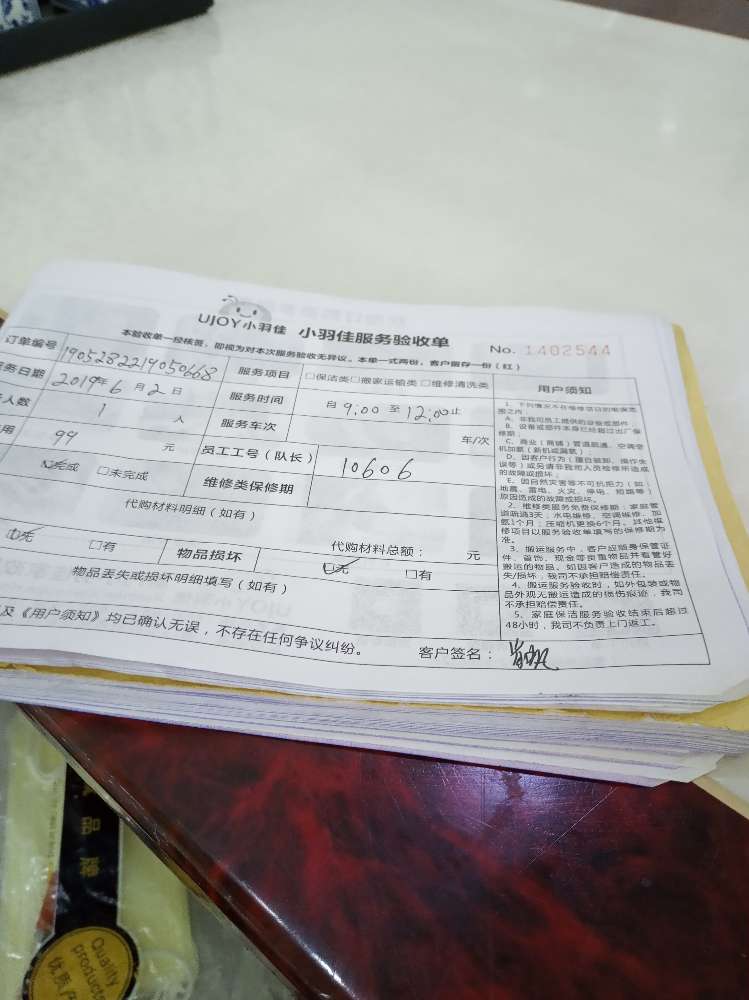 UJOY小羽佳 小羽佳服务验收单
本验收单一经核签，即视为对本次服务验收无异议。本单一式两份，客户留存一份（红）
No. 1402544
订单编号 1905282219050668 服务项目 □保洁类□搬家运输类□维修清洗类 用户须知
务日期 2019年6月2日 服务时间 自9:00至12:00止
人数 1 人 服务车次 车/次
用 99 元 员工工号（队长） 10606
完成 □未完成 维修类保修期
代购材料明细（如有）
代购材料总额： 元
无 □有 物品损坏 无 □有
物品丢失或损坏明细填写（如有）
及《用户须知》均已确认无误，不存在任何争议纠纷。 客户签名：
1、下列情况不在维修项目的保保范
围之内：
A、非我司员工提供的设备或部件
B、设备或部件本身已经超过出厂保
修期；
C、商业（商铺）管道疏通、空调含
机加氨（新机或漏氨）；
D、因客户行为（擅自破卸、操作失
误等）或另请非我司人员检修所造成
的故障或损坏；
E、因自然灾害等不可抗拒力（如：
地震、雷电、火灾、停电、短路等）
原因造成的故障或损坏。
2、维修类服务免费保修期：家庭管
道疏通3天；水电维修、空调维修、加
氨1个月；压缩机更换6个月。其他维
修项目以服务验收单填写的保修期为
准。
3、搬运服务中，客户应随身保管证
件、首饰、现金等贵重物品并看管好
搬运的物品。如因客户造成的物品丢
失/损坏，我司不承担赔偿责任。
4、搬运服务验收时，如外包装或物
品外观无搬运造成的损伤痕迹，我司
不承担赔偿责任。
5、家庭保洁服务验收结束后超过
48小时，我司不负责上门返工。
Quality
product
优质产